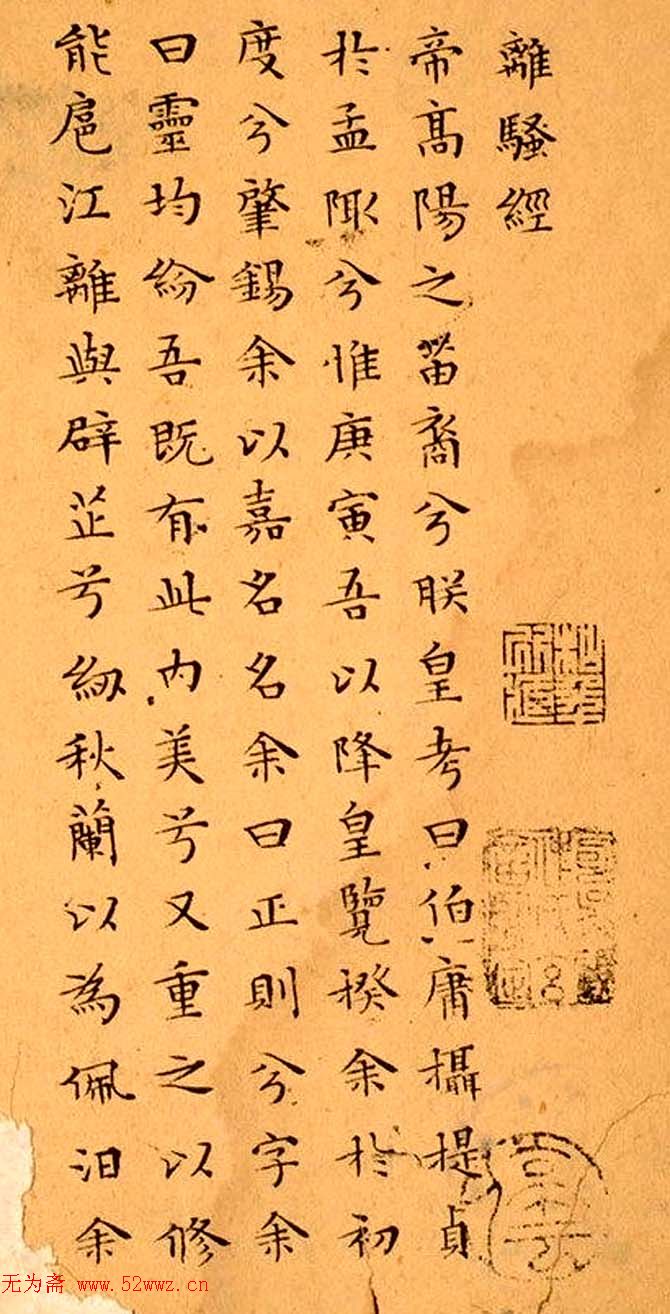 離騷經
帝高陽之苗裔兮朕皇考曰伯庸攝提貞
於孟陬兮惟庚寅吾以降皇覽揆余於初
度兮肇錫余以嘉名名余曰正則兮字余
曰靈均紛吾既有此內美兮又重之以修
能扈江離與辟芷兮紉秋蘭以為佩汩余
无为斋 www.52wwz.cn